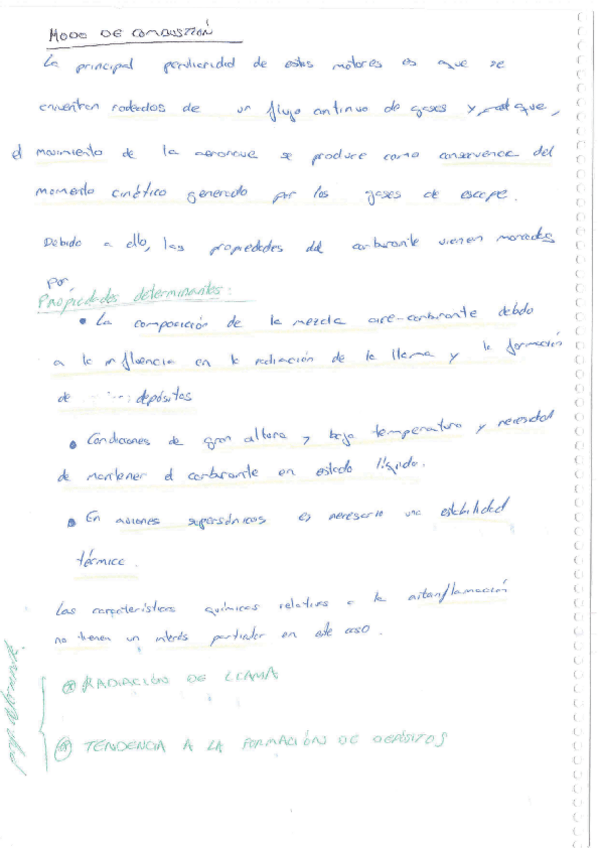 MODO DE COMBUSTIÓN
La principal peculiaridad de estos motores es que se
encuentran rodeados de un flujo continuo de gases y que,
el movimiento de la aeronave se produce como conservenca del
momento cinético generado por los gases de escape.
Debido a ello, las propiedades del carburante vienen marcadas
por,
Propiedades determinantes:
• La composición de la mezcla aire-carburante debido
a la influencia en la radiación de la llama y la formación
de depósitos
• Condiciones de gran altura y baja temperatura y necesidad
de mantener el carburante en estado líquido.
• En aviones supersónicos es necesario una estabilidad
térmica.
Las características químicas relativas a la autoinflamación
no tienen un interés particular en este caso.
RADIACIÓN DE LLAMA
TENDENCIA A LA FORMACIÓN DE DEPÓSITOS